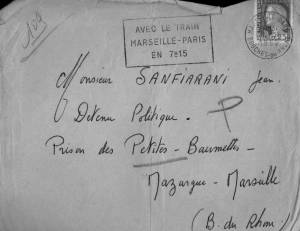 109
AVEC LE TRAIN
MARSEILLE-PARIS
EN 7H15
Monsieur SANFIARANI Jean.
Détenu Politique. P
Prison des Petites-Baumettes-
Mazargue-Marseille
(B. du Rhône)